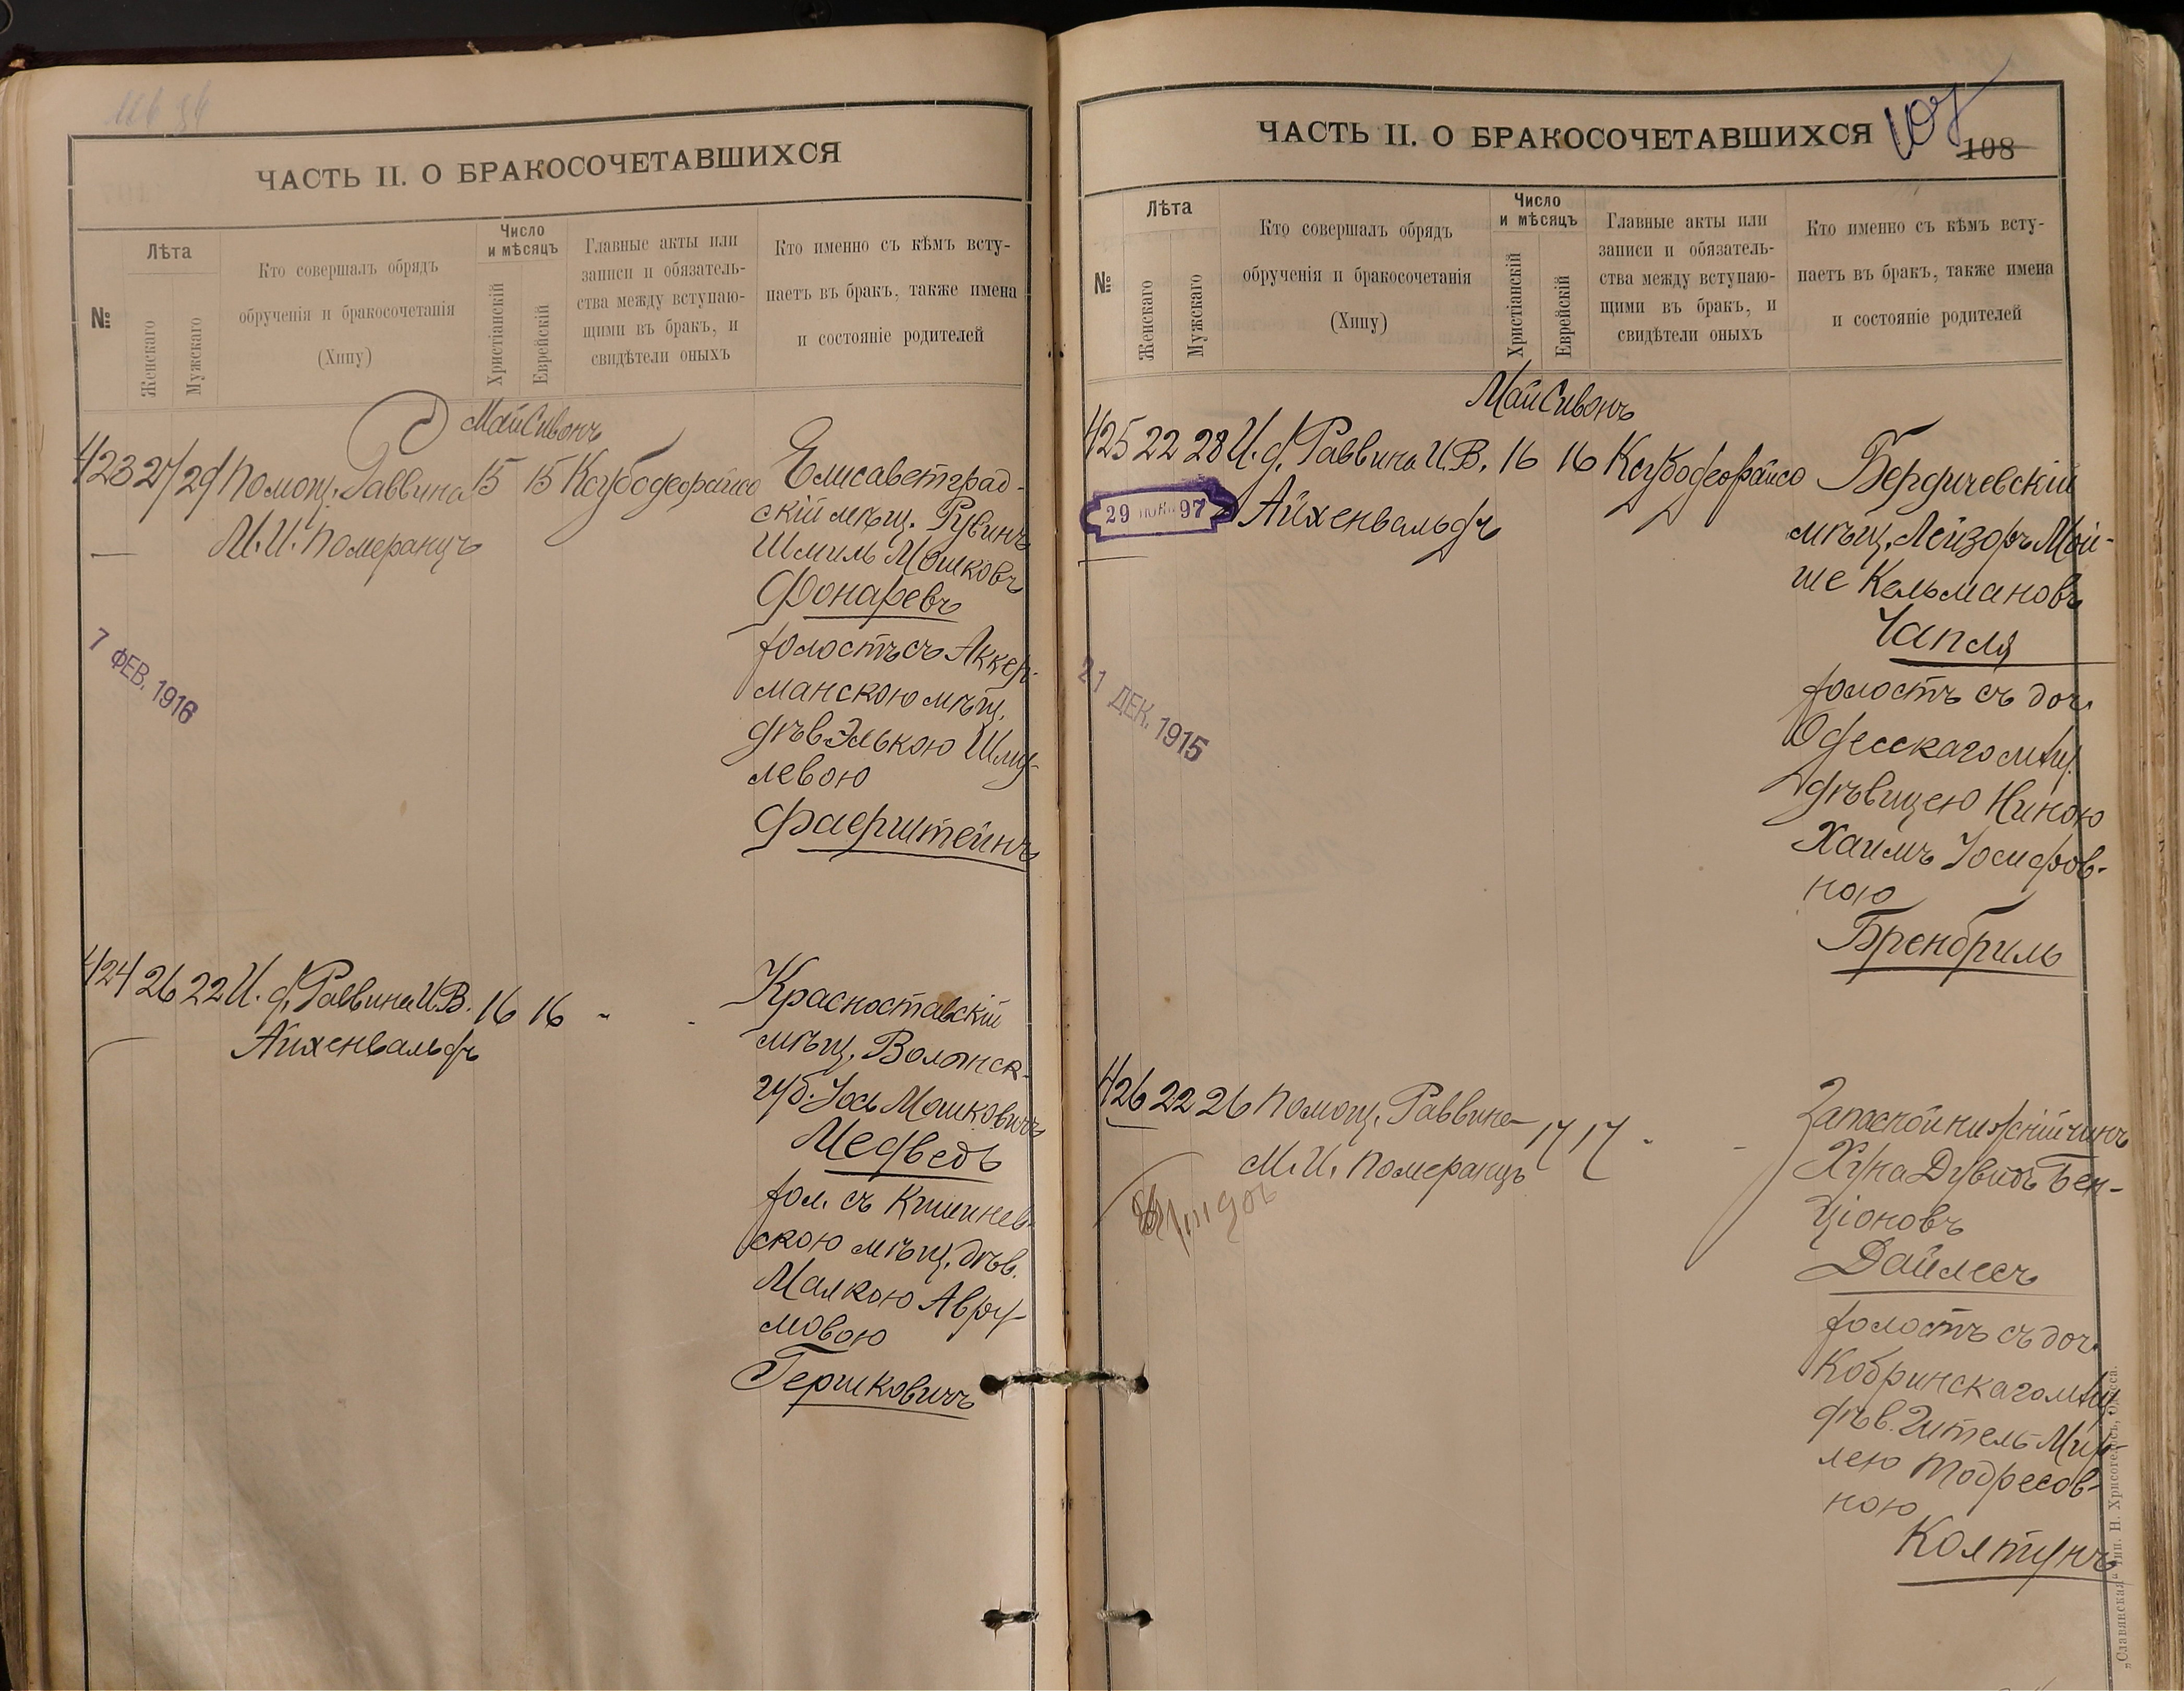 ЧАСТЬ II. О БРАКОСОЧЕТАВШИХСЯ
№
Лѣта
Женскаго
Мужскаго
Кто совершалъ обрядъ
обрученія и бракосочетанія
(Хипу)
Число
и мѣсяцъ
Христіанскій
Еврейскій
Главные акты или
записи и обязатель-
ства между вступаю-
щими въ бракъ, и
свидѣтели оныхъ
Кто именно съ кѣмъ всту-
паетъ въ бракъ, также имена
и состояніе родителей
Май Сивонъ
423 27 29 Помощ. Раввина 15 15
М. И. Померанцъ
Елисаветград-
скій мѣщ. Рувинъ
Шмиль Мошковъ
Фонаревъ
холостъ съ Аккер-
манскою мѣщ.
дѣв Элькою Шму-
левою
Фаерштейнъ
7 ФЕВ. 1916
424 26 22 И. д. Раввина И.В. 16 16 " -
Айхенвальдъ
Красноставскій
мѣщ. Волынск.
губ. Іось Мошковичъ
Медведь
хол. съ Кишинев-
скою мѣщ. дѣв.
Малкою Авру-
мовою
Гершковичъ
ЧАСТЬ II. О БРАКОСОЧЕТАВШИХСЯ
107
108
№
Лѣта
Женскаго
Мужскаго
Кто совершалъ обрядъ
обрученія и бракосочетанія
(Хипу)
Число
и мѣсяцъ
Христіанскій
Еврейскій
Главные акты или
записи и обязатель-
ства между вступаю-
щими въ бракъ, и
свидѣтели оныхъ
Кто именно съ кѣмъ всту-
паетъ въ бракъ, также имена
и состояніе родителей
Май Сивонъ
425 22 28 И. д. Раввина И.В. 16 16
Айхенвальдъ
29 97
Бердичевскій
мѣщ. Лейзоръ Мой-
ше Кельмановъ
Чапля
холостъ съ доч.
Одесскаго мѣщ.
дѣвицею Ниною
Хаимъ Іосифов-
ною
Бренбриль
21 ДЕК. 1915
426 22 26 Помощ. Раввина 17 17 - -
М. И. Померанцъ
Запасной нижній чинъ
Хуна Дувидъ Бен-
ціоновъ
Дайлесъ
холостъ съ доч.
Кобринскаго мѣщ.
дѣв. Гитель Мир-
лею Тодресов-
ною
Колтунъ
„Славянская“ тип. Н. Хрисогелосъ, Одесса.